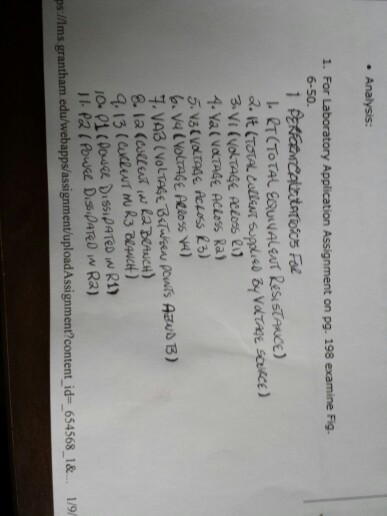 • Analysis:
1. For Laboratory Application Assignment on pg. 198 examine Fig.
6-50.
1 PERFORM CALCULATIONS FOR
1. RT (TOTAL EQUIVALENT RESISTANCE)
2. It (TOTAL CURRENT SUPPLIED BY VOLTAGE SOURCE)
3. V1 (VOLTAGE ACROSS R1)
4. V2 (VOLTAGE ACROSS R2)
5. V3 (VOLTAGE ACROSS R3)
6. V4 (VOLTAGE ACROSS V4)
7. VAB (VOLTAGE BETWEEN POINTS A AND B)
8. I2 (CURRENT IN R2 BRANCH)
9. I3 (CURRENT IN R3 BRANCH)
10. P1 (POWER DISSIPATED IN R1)
11. P2 (POWER DISSIPATED IN R2)
ps://lms.grantham.edu/webapps/assignment/uploadAssignment?content_id=_654568_1&... 1/9/